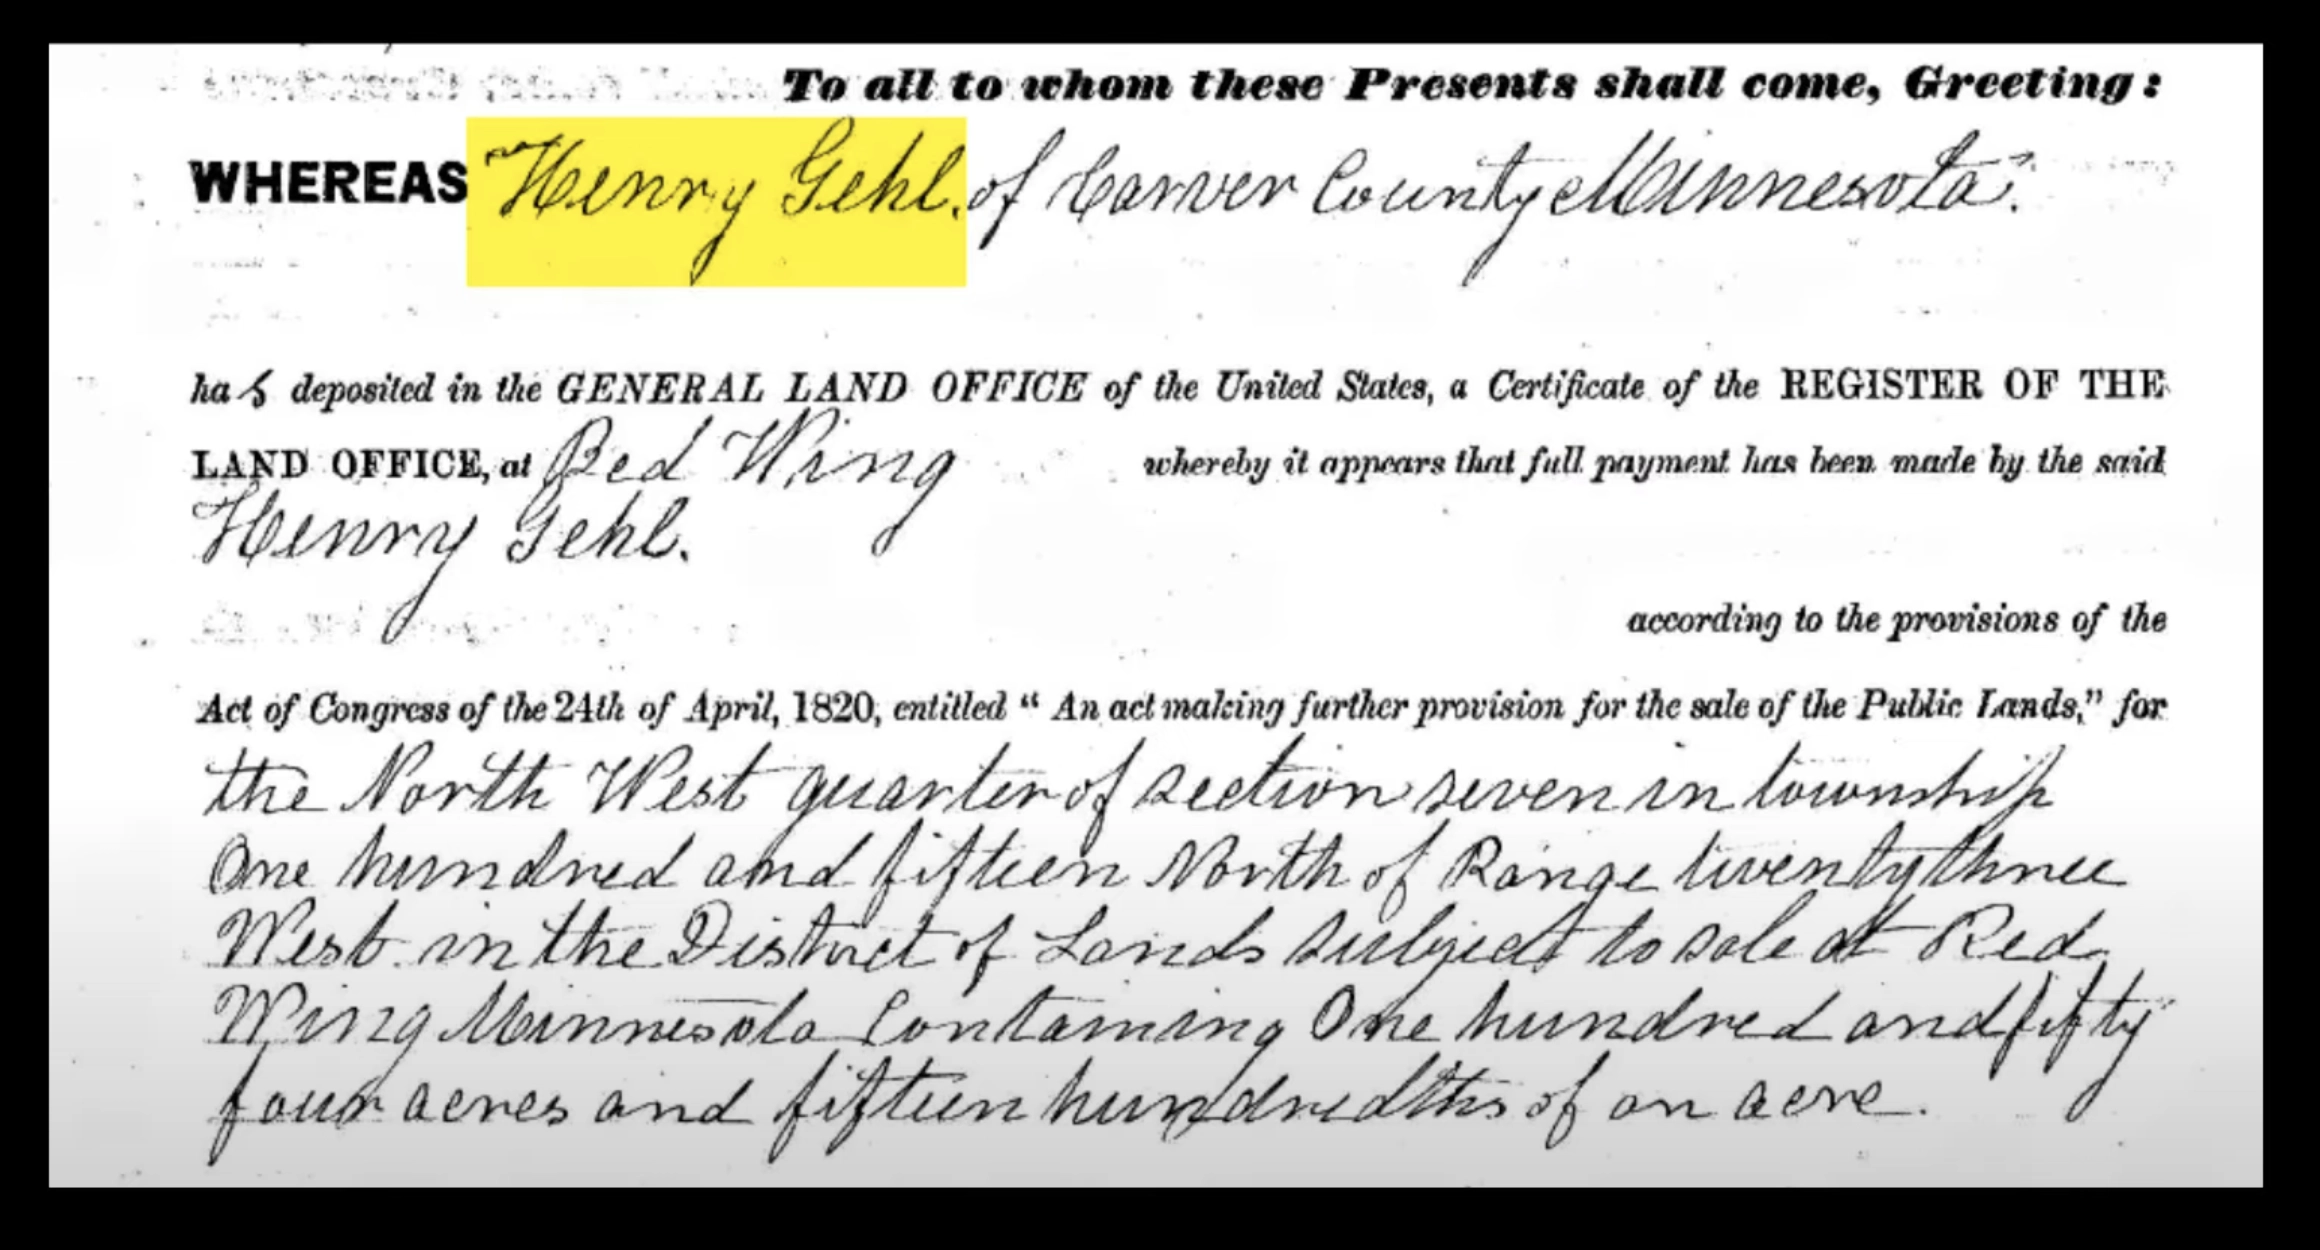 To all to whom these Presents shall come, Greeting:
WHEREAS Henry Gehl. of Carver County Minnesota.
has deposited in the GENERAL LAND OFFICE of the United States, a Certificate of the REGISTER OF THE
LAND OFFICE, at Red Wing whereby it appears that full payment has been made by the said
Henry Gehl.
according to the provisions of the
Act of Congress of the 24th of April, 1820, entitled “ An act making further provision for the sale of the Public Lands,” for
the North West quarter of section seven in township
One hundred and fifteen North of Range twenty three
West in the District of Lands subject to sale at Red
Wing Minnesota Containing One hundred and fifty
four acres and fifteen hundredths of an acre.